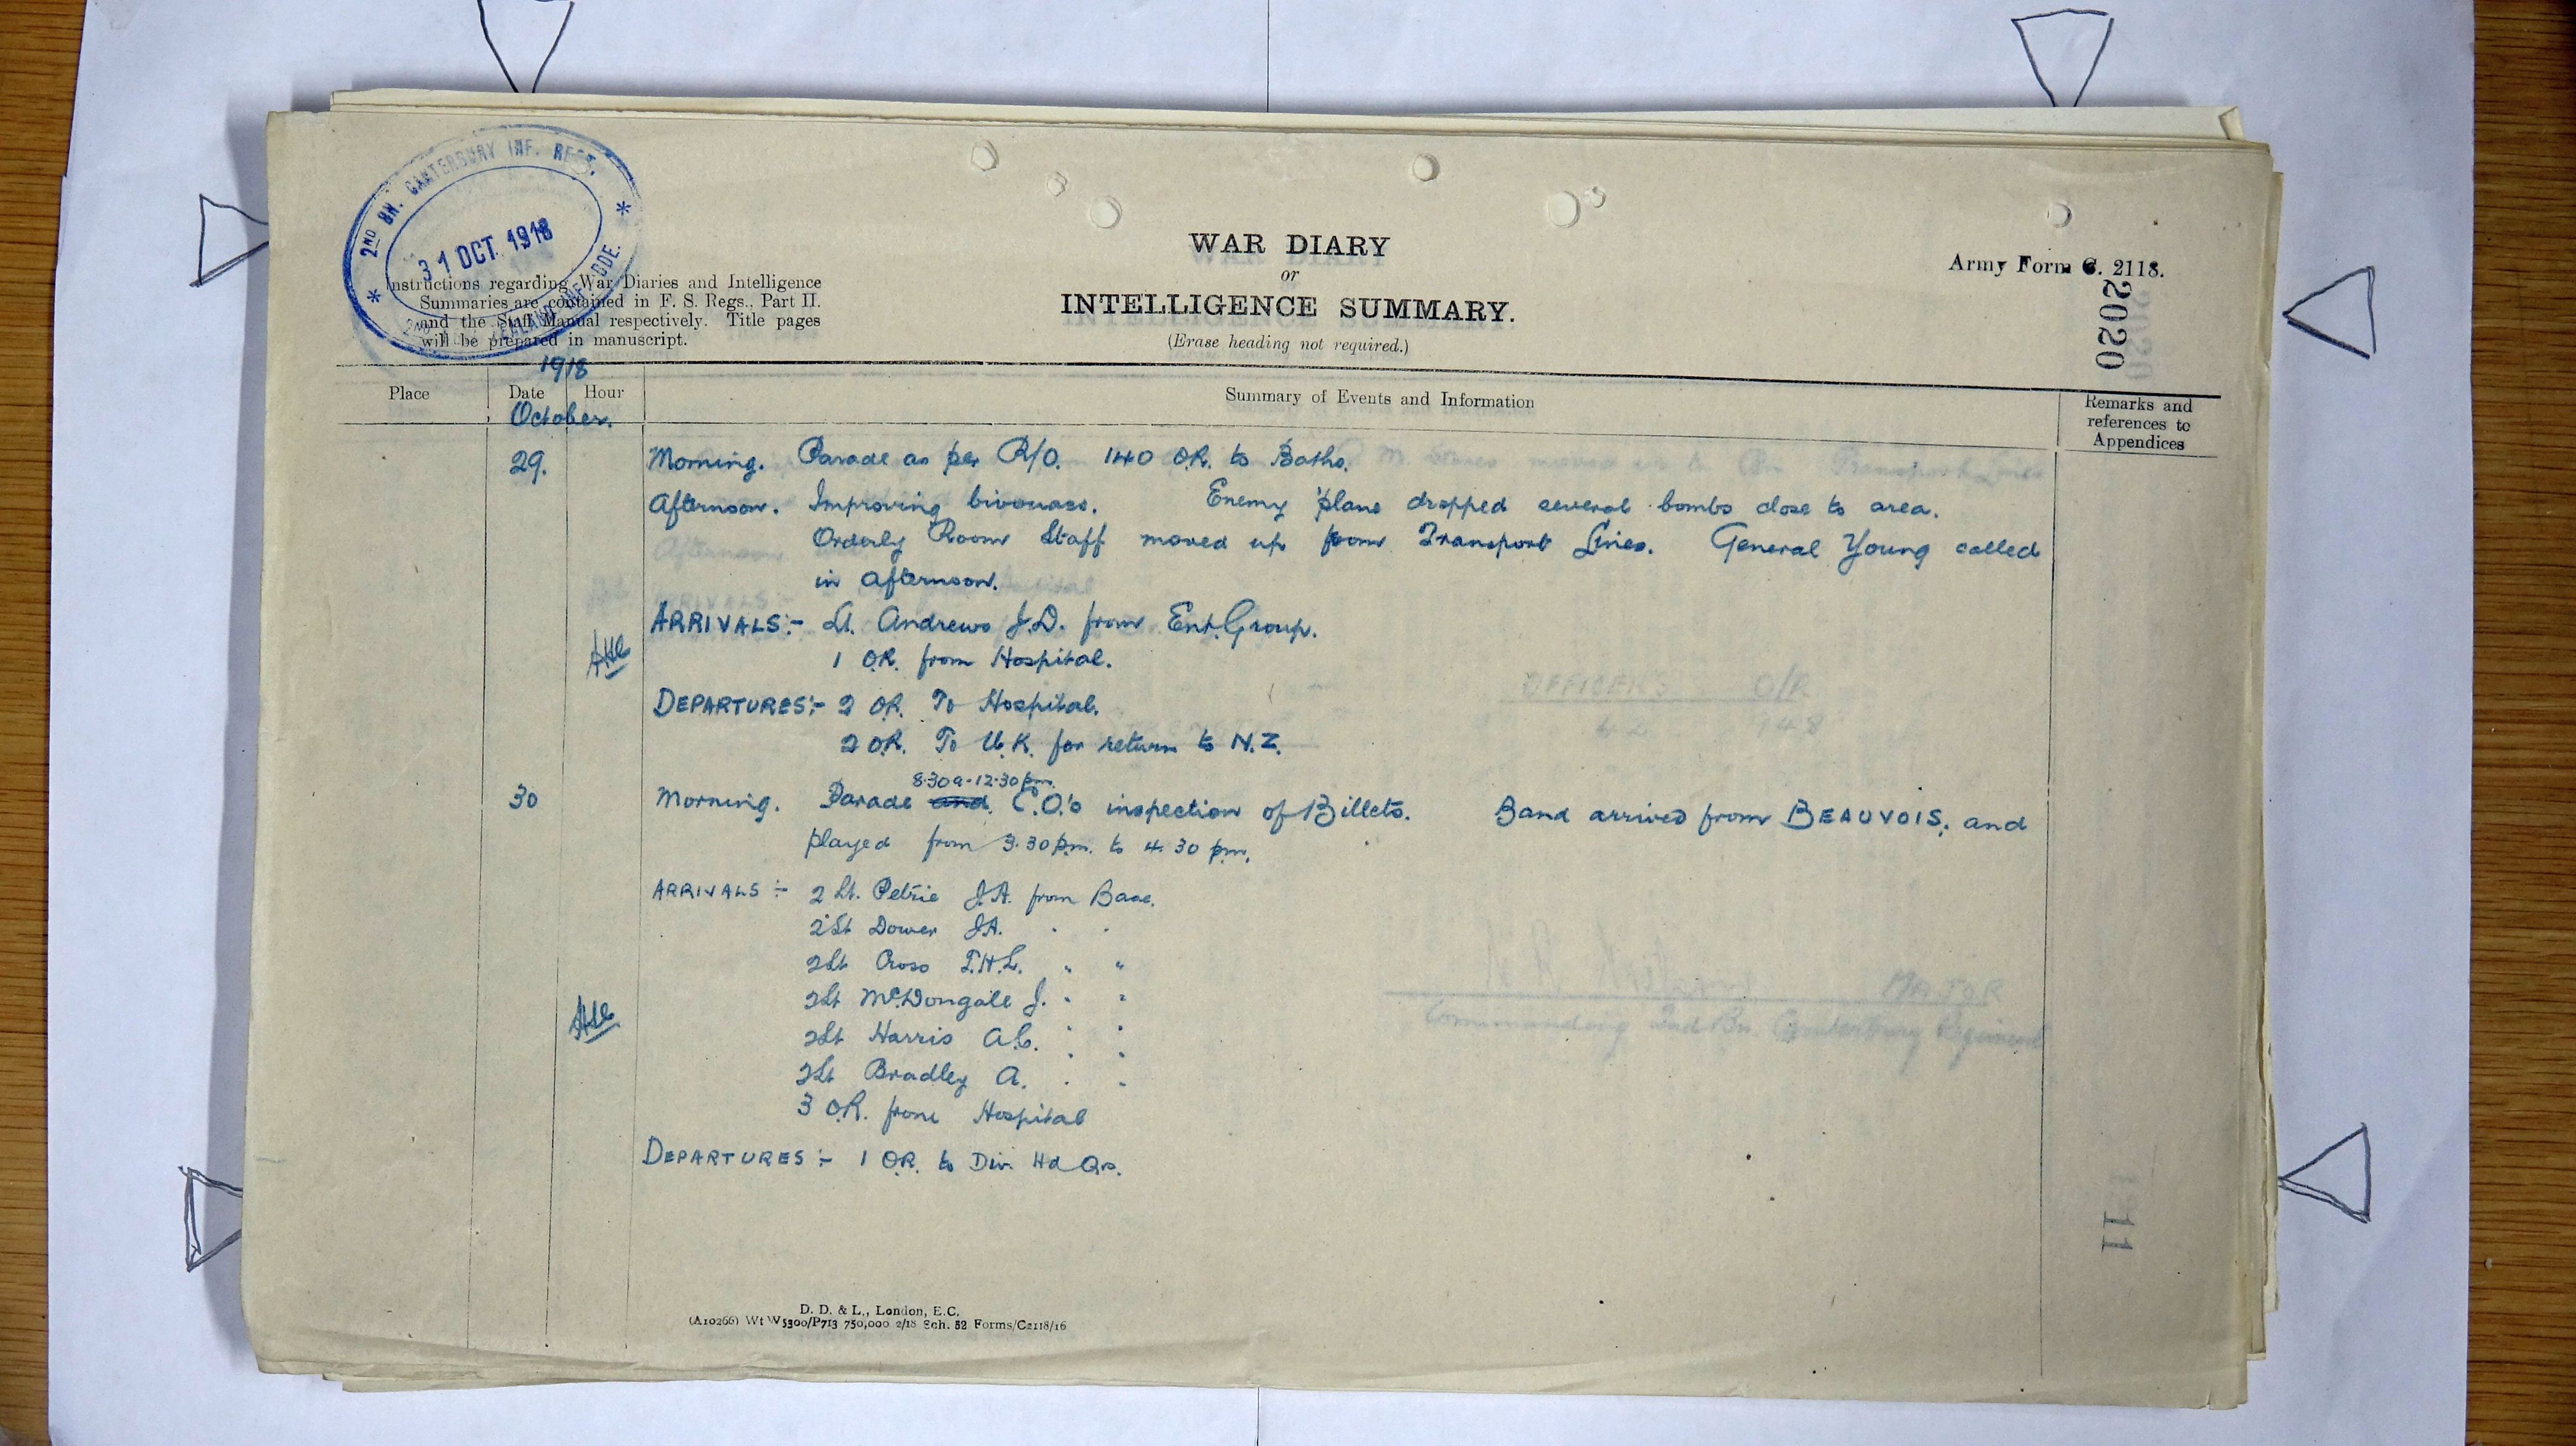 2ND BN. CANTERBURY INF. REGT.
31 OCT. 1918
WAR DIARY
or
INTELLIGENCE SUMMARY.
(Erase heading not required.)
Army Form C. 2118.
2020
Instructions regarding War Diaries and Intelligence
Summaries are contained in F. S. Regs., Part II.
and the Staff Manual respectively. Title pages
will be prepared in manuscript.
1918
Place Date Hour Summary of Events and Information Remarks and references to Appendices
October.
29. Morning. Parade as per R/O. 140 O.R. to Baths.
Afternoon. Improving bivouacs. Enemy plane dropped several bombs close to area.
Orderly Room Staff moved up from Transport Lines. General Young called
in afternoon.
ARRIVALS:- Lt. Andrews J.D. from Ent. Group.
1 O.R. from Hospital.
DEPARTURES:- 2 O.R. To Hospital.
2 O.R. To U.K. for return to N.Z.
8.30a-12.30pm.
30 Morning. Parade and C.O.'s inspection of Billets. Band arrived from BEAUVOIS. and
played from 3.30 p.m. to 4.30 pm.
ARRIVALS:- 2 Lt. Petrie J.A. from Base.
2Lt Dower J.A. " "
2Lt Cross T.H.L. " "
2Lt McDougall J. " "
2Lt Harris A.C. " "
2Lt Bradley A. " "
3 O.R. from Hospital
DEPARTURES:- 1 O.R. to Div. Hd Qrs.
D. D. & L., London, E.C.
(A10266) Wt W5300/P713 750,000 2/18 Sch. 52 Forms/C2118/16